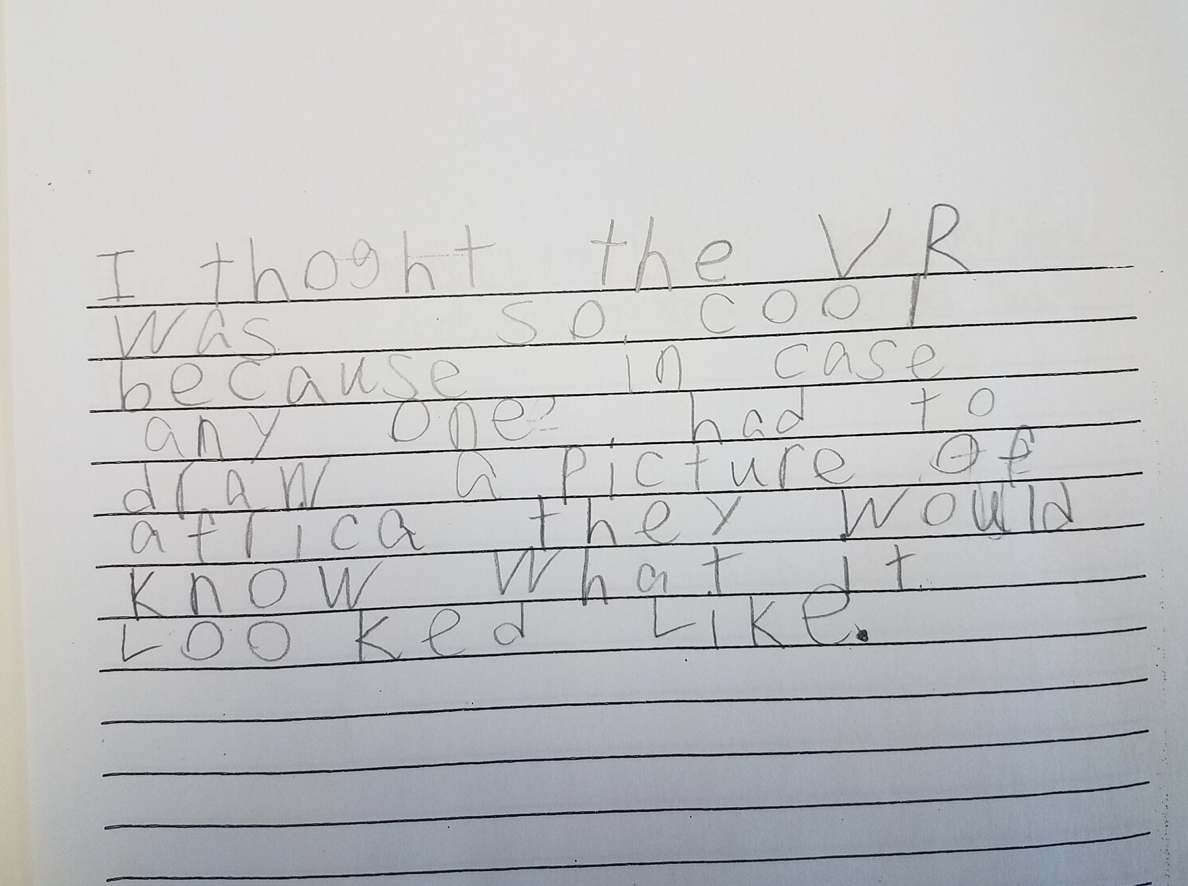 I thoght the VR
was so cool
because in case
any one had to
draw a picture of
africa they would
know what It
Looked Like.